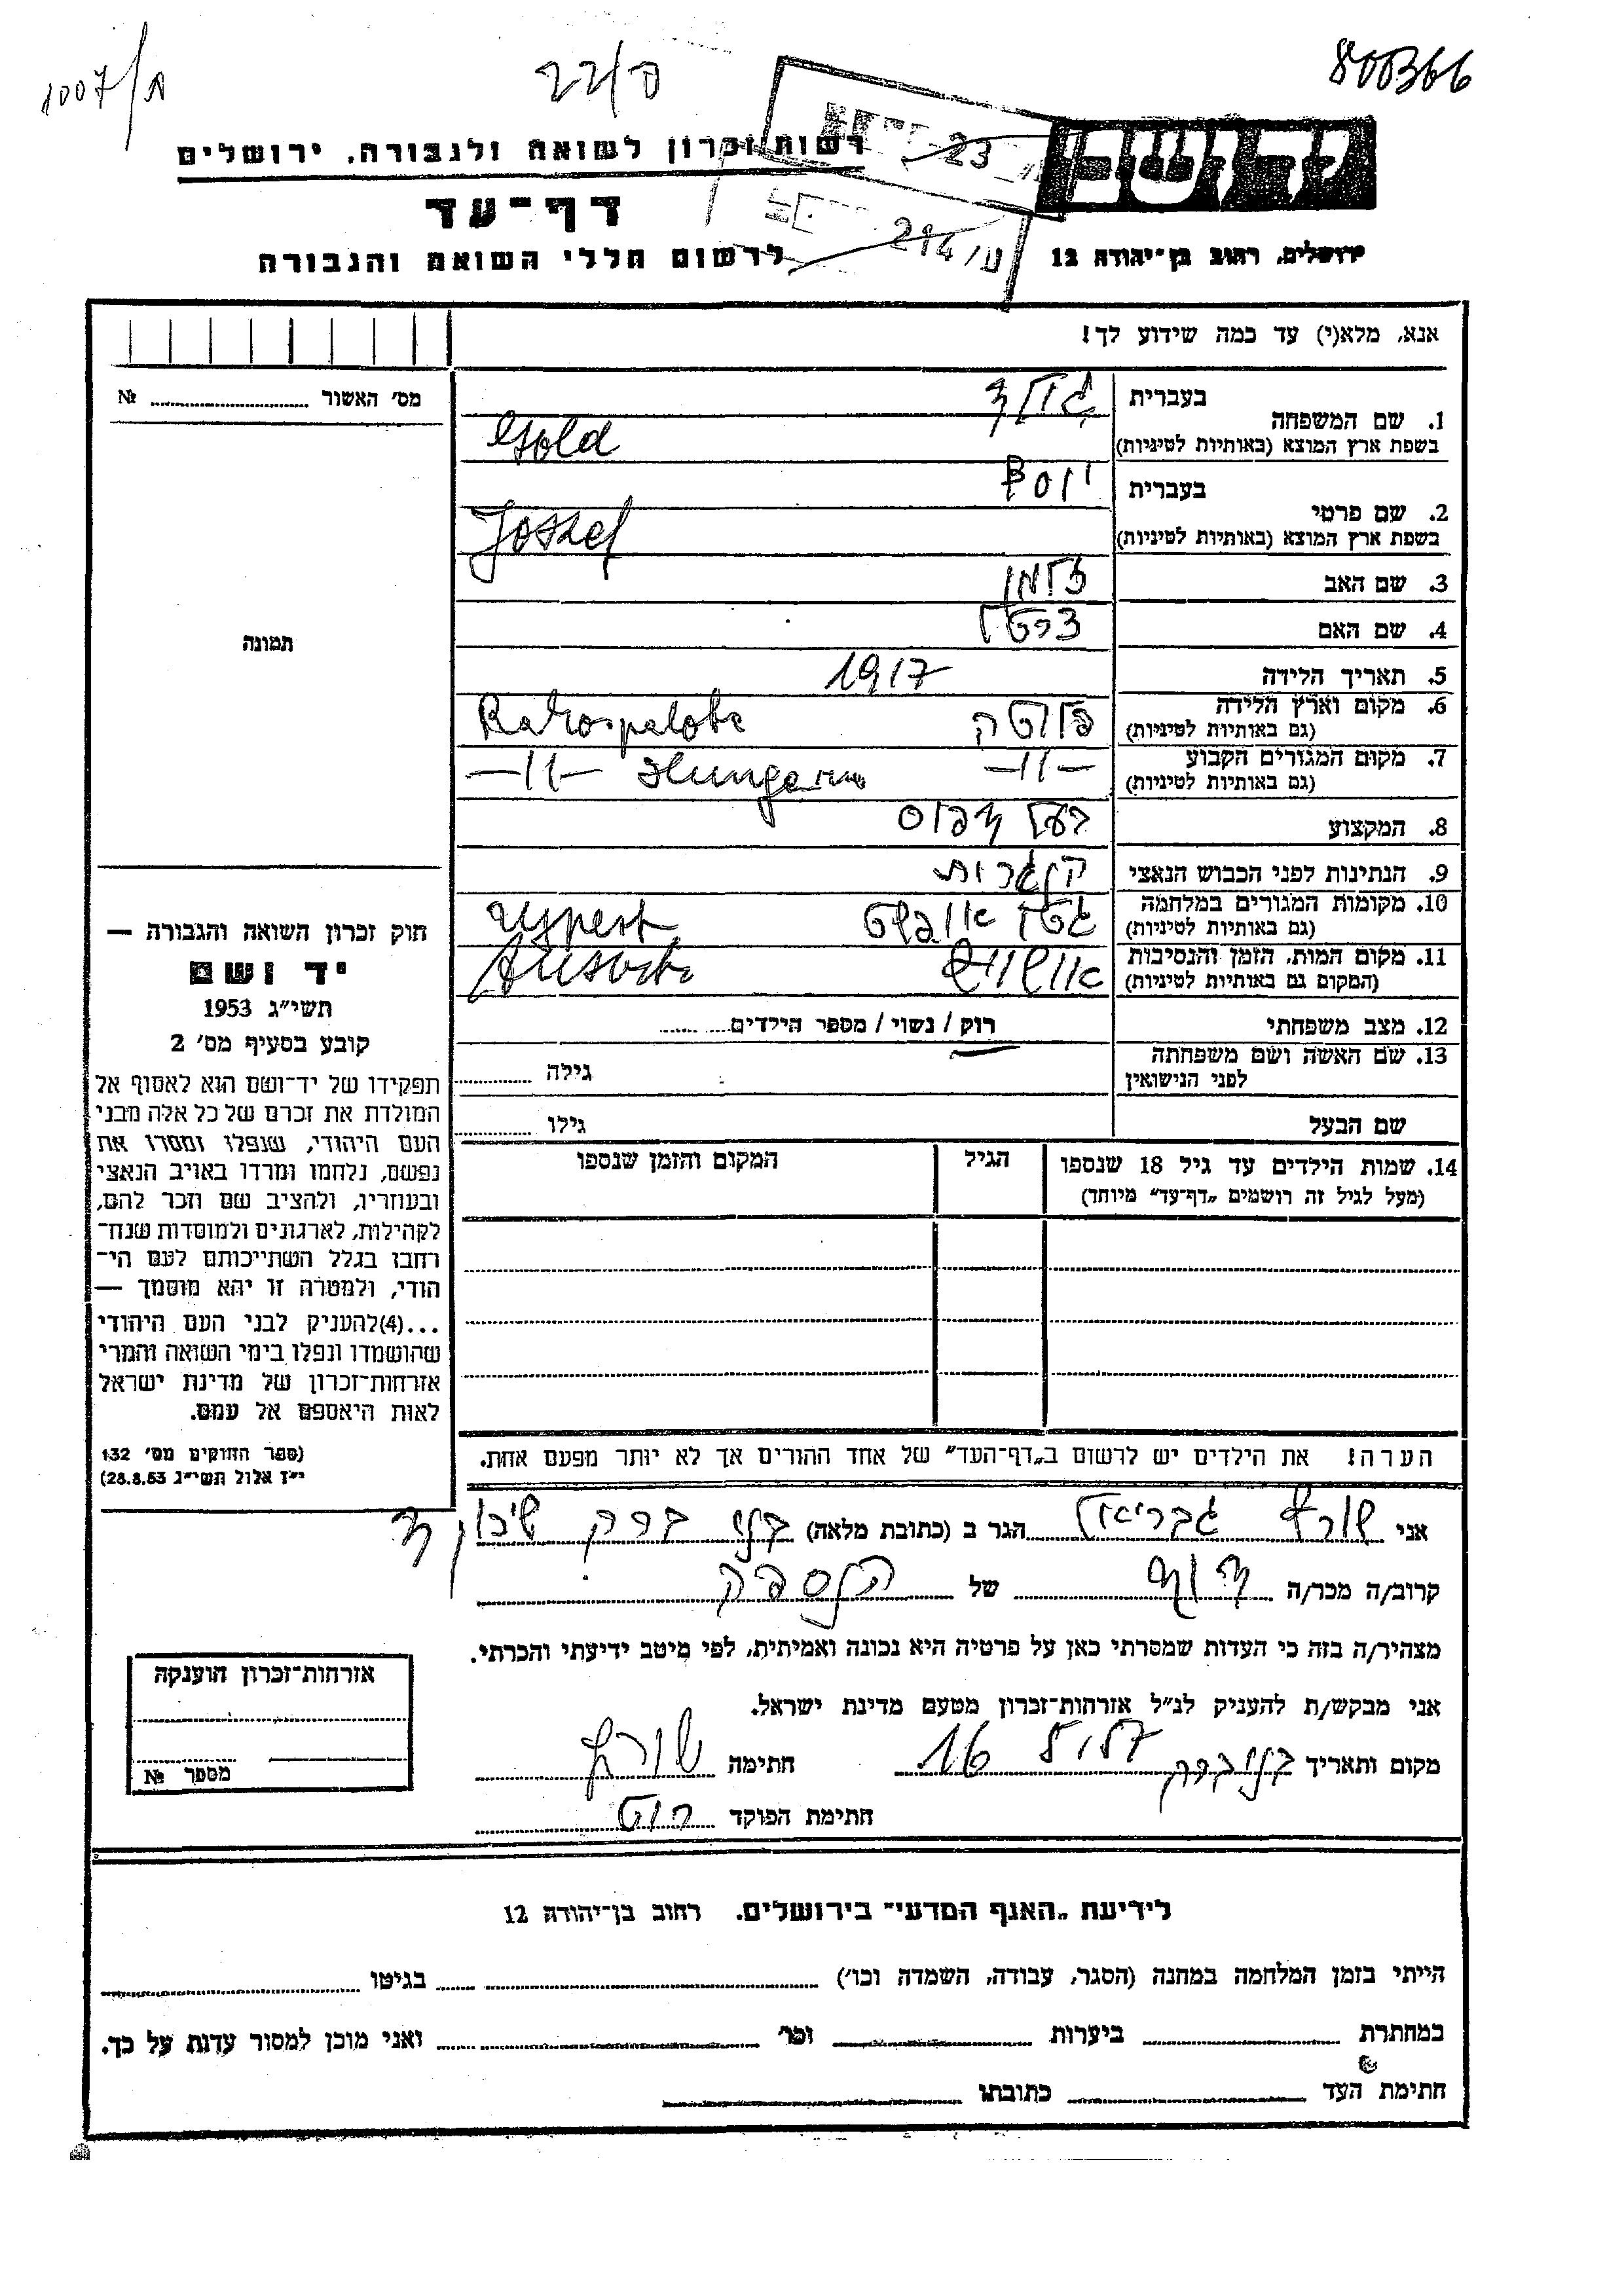 1007/ת
פ/22
800366
רשות זכרון לשואה ולגבורה, ירושלים
23
יד ושם
דף-עד
214/ע
לרשום חללי השואה והגבורה
ירושלים, רחוב בן-יהודה 12
אנא, מלא(י) עד כמה שידוע לך!
מס' האשור № 
1. שם המשפחה
בעברית גולד
בשפת ארץ המוצא (באותיות לטיניות) Gold
2. שם פרטי
בעברית יוסף
בשפת ארץ המוצא (באותיות לטיניות) Jossef
3. שם האב זלמן
4. שם האם
5. תאריך הלידה 1917
6. מקום וארץ הלידה
(גם באותיות לטיניות) פלוטה Rakospalota
7. מקום המגורים הקבוע
(גם באותיות לטיניות) —״— —״— Hungaria
8. המקצוע בעל דפוס
9. הנתינות לפני הכבוש הנאצי הונגרית
10. מקומות המגורים במלחמה
(גם באותיות לטיניות) גטו אויפשט Ujpest
11. מקום המות, הזמן והנסיבות
(המקום גם באותיות לטיניות) אושוויץ
12. מצב משפחתי רוק / נשוי / מספר הילדים
13. שם האשה ושם משפחתה
לפני הנישואין גילה
שם הבעל גילו
14. שמות הילדים עד גיל 18 שנספו
(מעל לגיל זה רושמים „דף-עד״ מיוחד)
הגיל
המקום והזמן שנספו
הערה! את הילדים יש לרשום ב„דף-העד״ של אחד ההורים אך לא יותר מפעם אחת.
תמונה
חוק זכרון השואה והגבורה —
יד ושם
תשי״ג 1953
קובע בסעיף מס' 2
תפקידו של יד-ושם הוא לאסוף אל
המולדת את זכרם של כל אלה מבני
העם היהודי, שנפלו ומסרו את
נפשם, נלחמו ומרדו באויב הנאצי
ובעוזריו, ולהציב שם וזכר להם,
לקהילות, לארגונים ולמוסדות שנח-
רבו בגלל השתייכותם לעם הי-
הודי, ולמטרה זו יהא מוסמך —
...(4)להעניק לבני העם היהודי
שהושמדו ונפלו בימי השואה והמרי
אזרחות-זכרון של מדינת ישראל
לאות היאספם אל עמם.
(ספר החוקים מס' 132
י״ז אלול תשי״ג 28.8.53)
אני שורץ גבריאל הגר ב (כתובת מלאה) בני ברק שיכון ד
קרוב/ה מכר/ה דוד של הנספה
מצהיר/ה בזה כי העדות שמסרתי כאן על פרטיה היא נכונה ואמיתית, לפי מיטב ידיעתי והכרתי.
אני מבקש/ת להעניק לנ״ל אזרחות-זכרון מטעם מדינת ישראל.
מקום ותאריך בני ברק 16 חתימה שורץ
חתימת הפוקד
אזרחות-זכרון הוענקה
מספר №
לידיעת „האגף המדעי״ בירושלים. רחוב בן-יהודה 12
הייתי בזמן המלחמה במחנה (הסגר, עבודה, השמדה וכו') בגיטו
במחתרת ביערות וכו' ואני מוכן למסור עדות על כך.
חתימת העד כתובתו